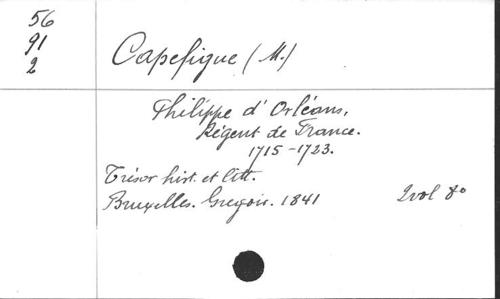 56
91
2
Capefigue (M.)
Philippe d'Orléans,
Régent de France.
1715-1723.
Trésor hist. et litt.
Bruxelles. Gregoir. 1841 2 vol 8o